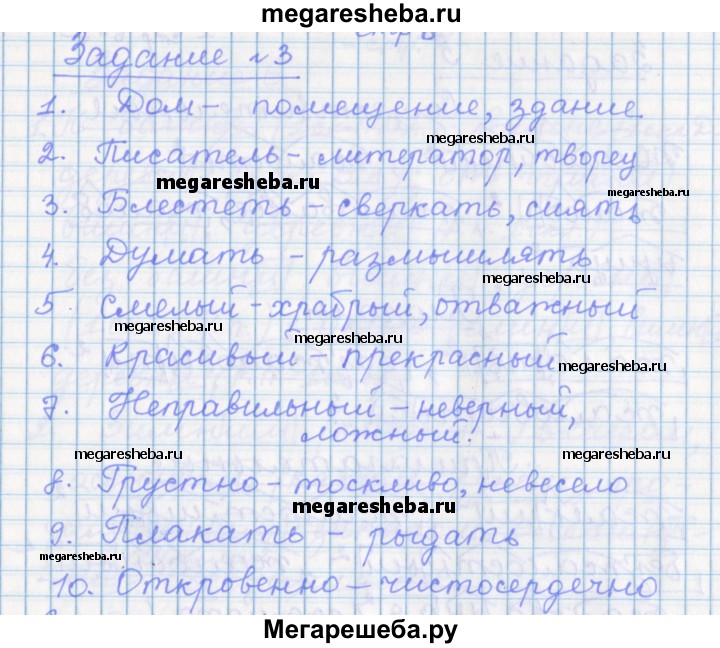 megaresheba.ru
Задание №3
1. Дом – помещение, здание
megaresheba.ru
2. Писатель – литератор, творец
megaresheba.ru
megaresheba.ru
3. Блестеть – сверкать, сиять
4. Думать – размышлять
megaresheba.ru
5. Смелый – храбрый, отважный
megaresheba.ru
megaresheba.ru
6. Красивый – прекрасный
megaresheba.ru
7. Неправильный – неверный,
ложный.
megaresheba.ru
megaresheba.ru
8. Грустно – тоскливо, невесело
megaresheba.ru
9. Плакать – рыдать
megaresheba.ru
10. Откровенно – чистосердечно
Мегарешеба.ру